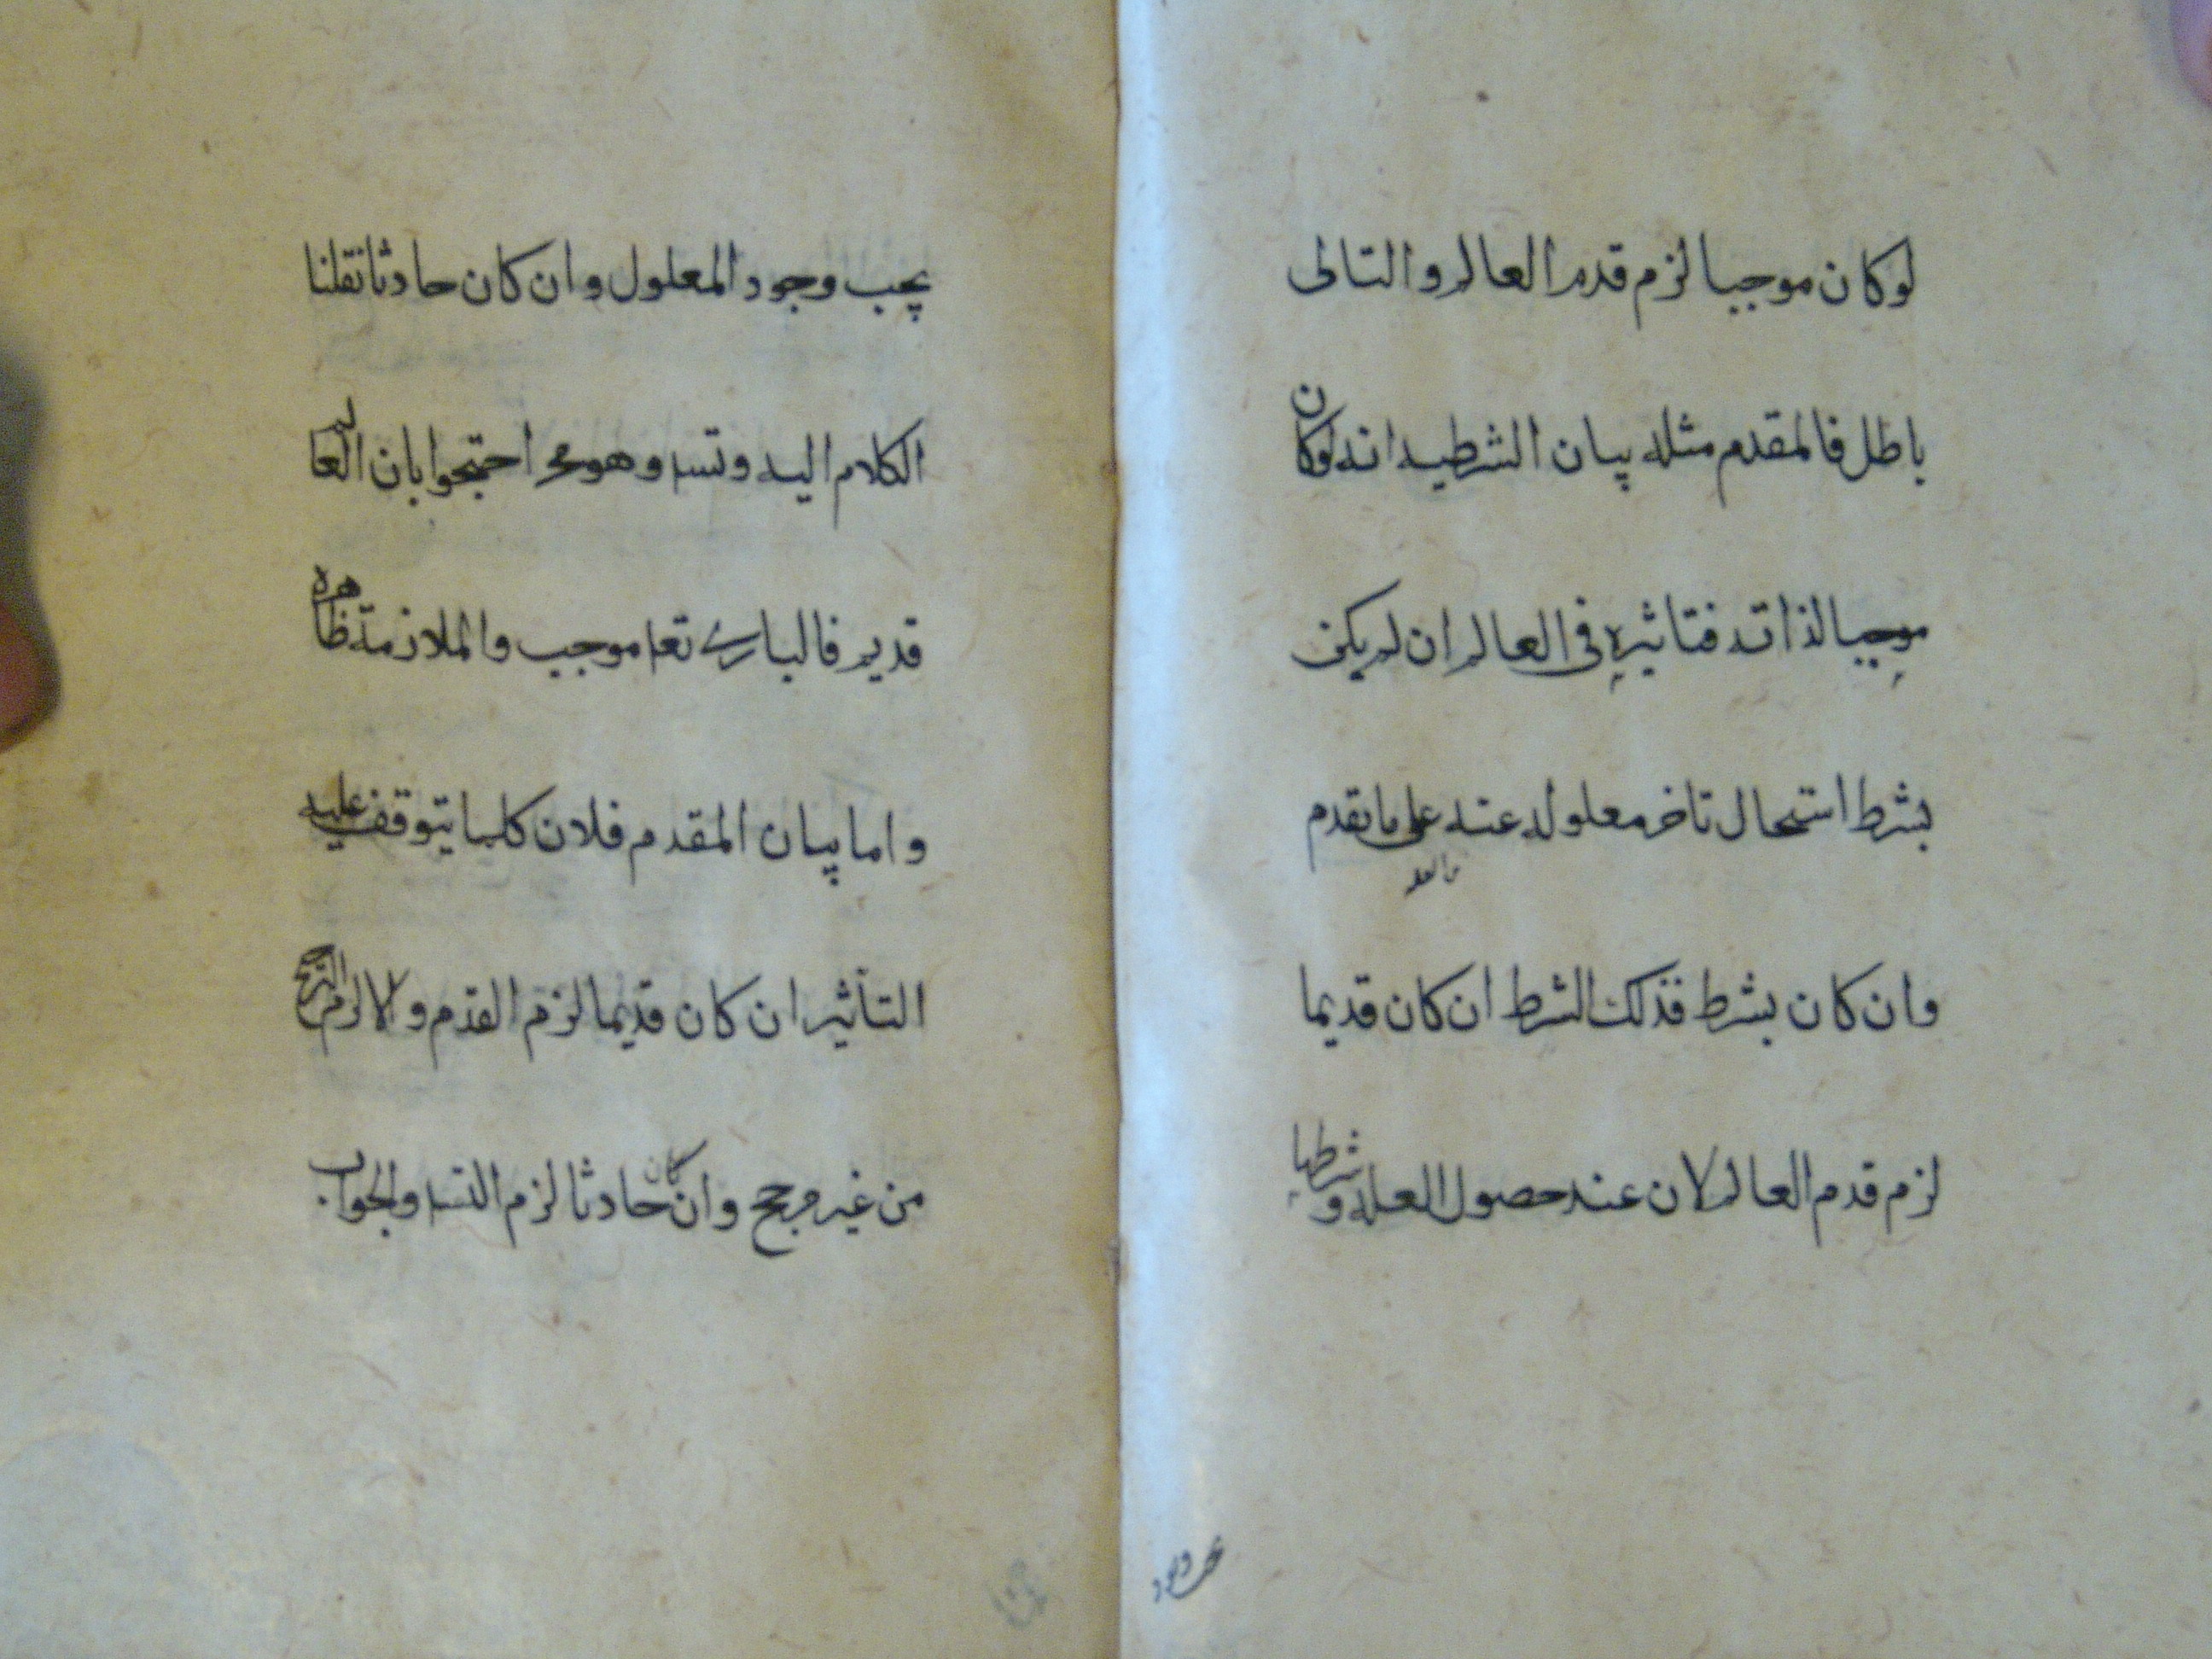 لوكان موجبا لزم قدم العالم والتالى
باطل فالمقدم مثله بيان الشرطيه انه لوكان
موجبا لذاته فتاثيره فى العالم ان لم يكن
بشرط استحال تاخر معلوله عنه على ما تقدم
وان كان بشرط فذلك الشرط ان كان قديما
لزم قدم العالم لان عند حصول العله وشرطها
يجب وجود
يجب وجود المعلول وان كان حادثا نقلنا
الكلام اليه وتسـ وهو مح احتجوا بان العالم
قديم فالبارى تعا موجب والملازمة ظاهره
واما بيان المقدم فلان كلما يتوقف عليه
التأثير ان كان قديما لزم القدم والا لزم الترجيح
من غير مرجح وان كان حادثا لزم التسـ والجواب